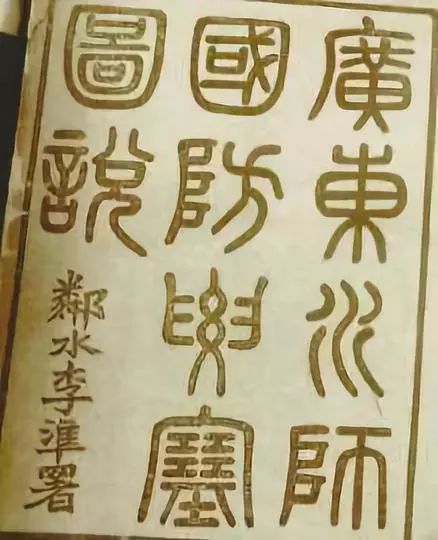 廣東水師
國防要塞
圖說
鄰水李準署